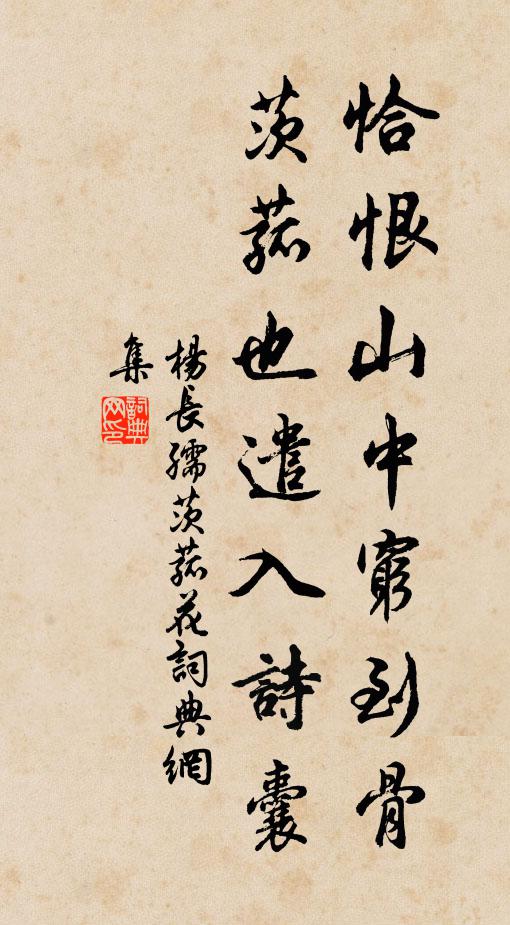 恰恨山中窮到骨
茨菰也遣入詩囊
楊長孺茨菰花詞典網
集
詞典網印